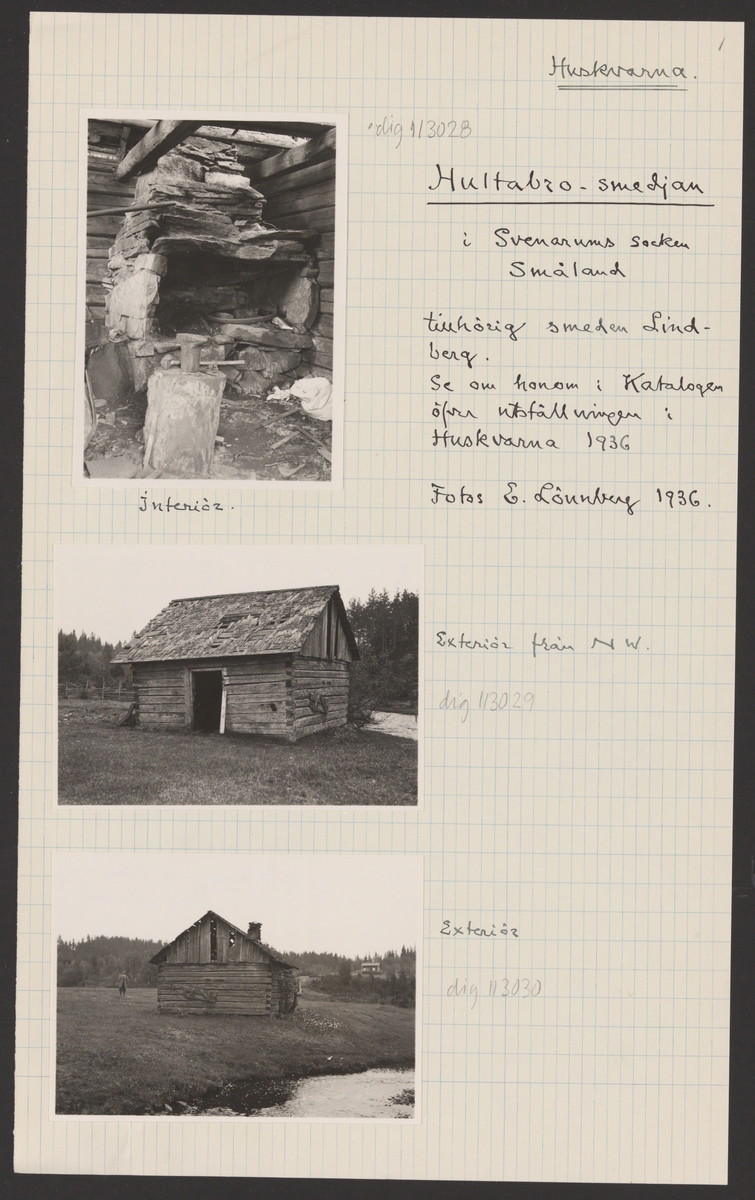 1
Huskvarna.
dig 113028
Hultabro-smedjan
i Svenarums socken
Småland
tillhörig smeden Lind-
berg.
Se om honom i Katalogen
öfver utställningen i
Huskvarna 1936
Fotos E. Lönnberg 1936.
Interiör.
Exteriör från N W.
dig 113029
Exteriör
dig 113030